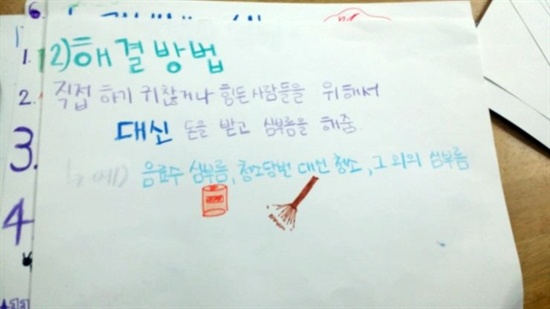 6.
1. 2)해결방법
2. 직접 하기 귀찮거나 힘든 사람들을 위해서
3. 대신 돈을 받고 심부름을 해줌.
ㄴ예) 음료수 심부름, 청소당번 대신 청소, 그 외의 심부름
4